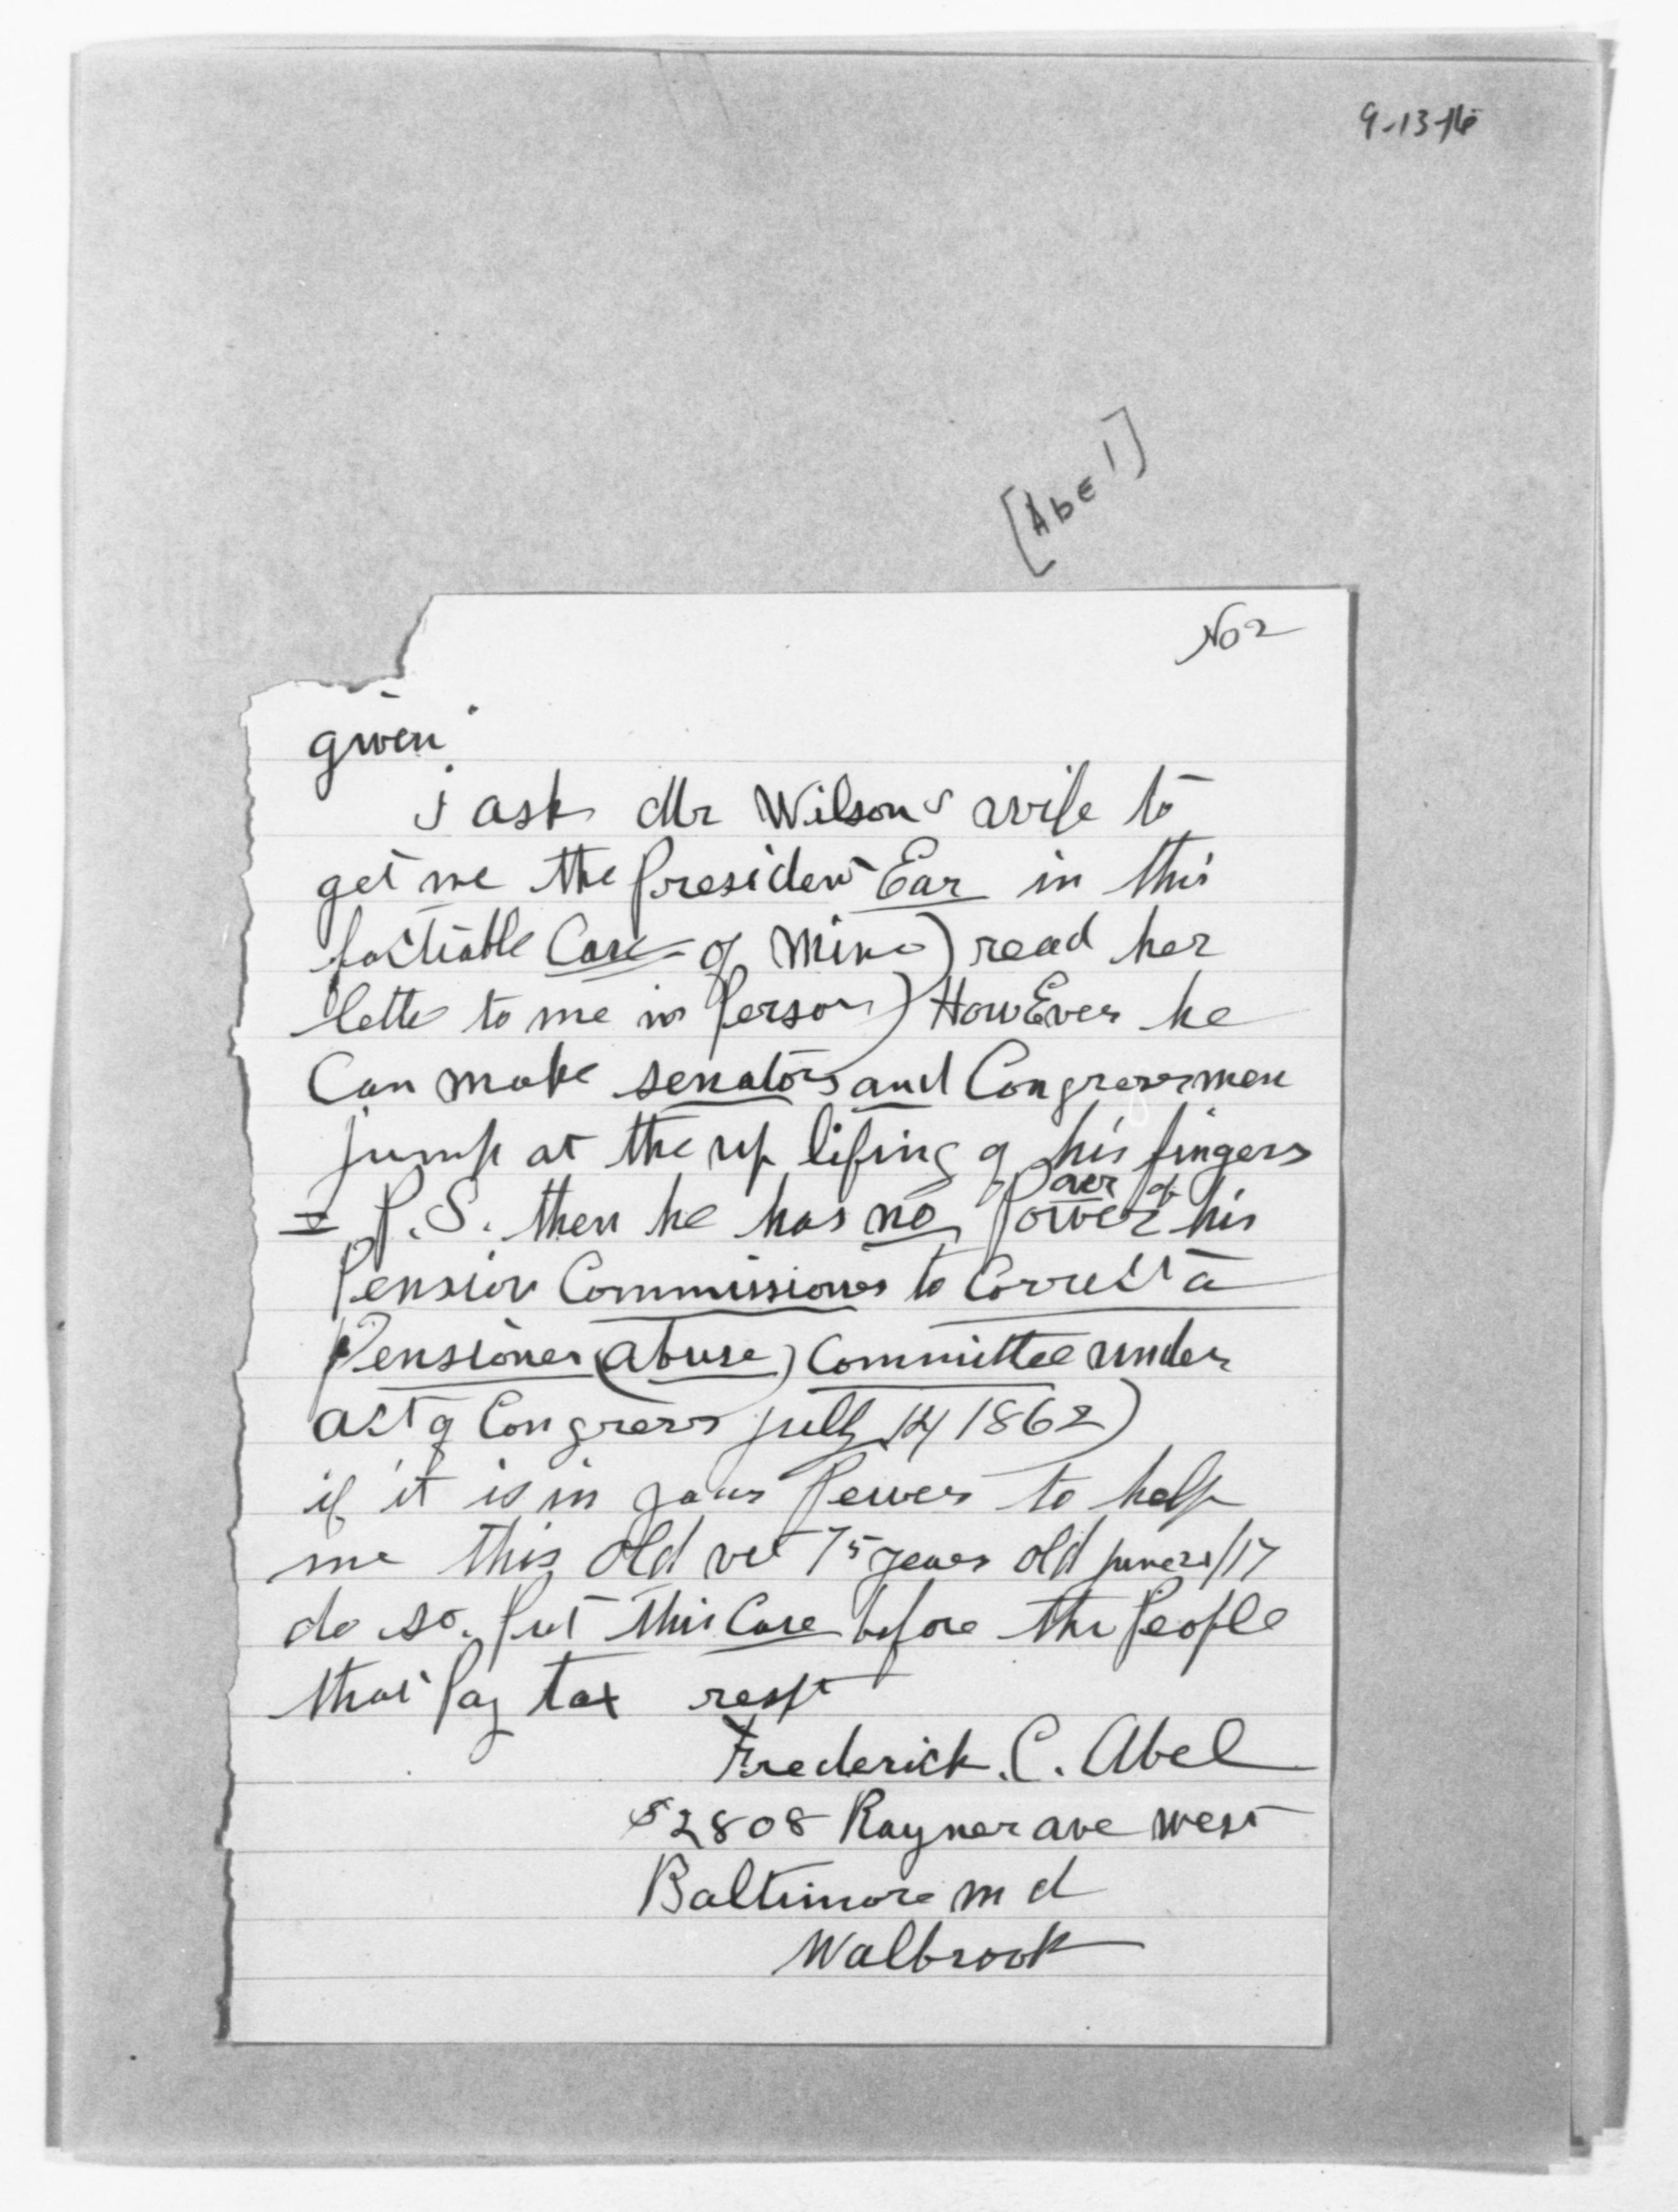 9-13-16
[Abel]
No 2
given
i ask Mr Wilsons wife to
get me the President Ear in this
Case of Mine) read her
lette to me in Person) HowEver he
Can make senators and Congressmen
jump at the up lifing of his fingers
= P.S. then he has no Power over of his
Pension Commissioner to Correct a
Pensioner (abuse) Committee under
act of Congress July 14 1862)
if it is in your Pewer to help
me this old vet 75 years old june 21/17
do so. Put this Case before the People
that Pay tax respt
Frederick. C. Abel
2808 Rayner ave west
Baltimore md
Walbrook